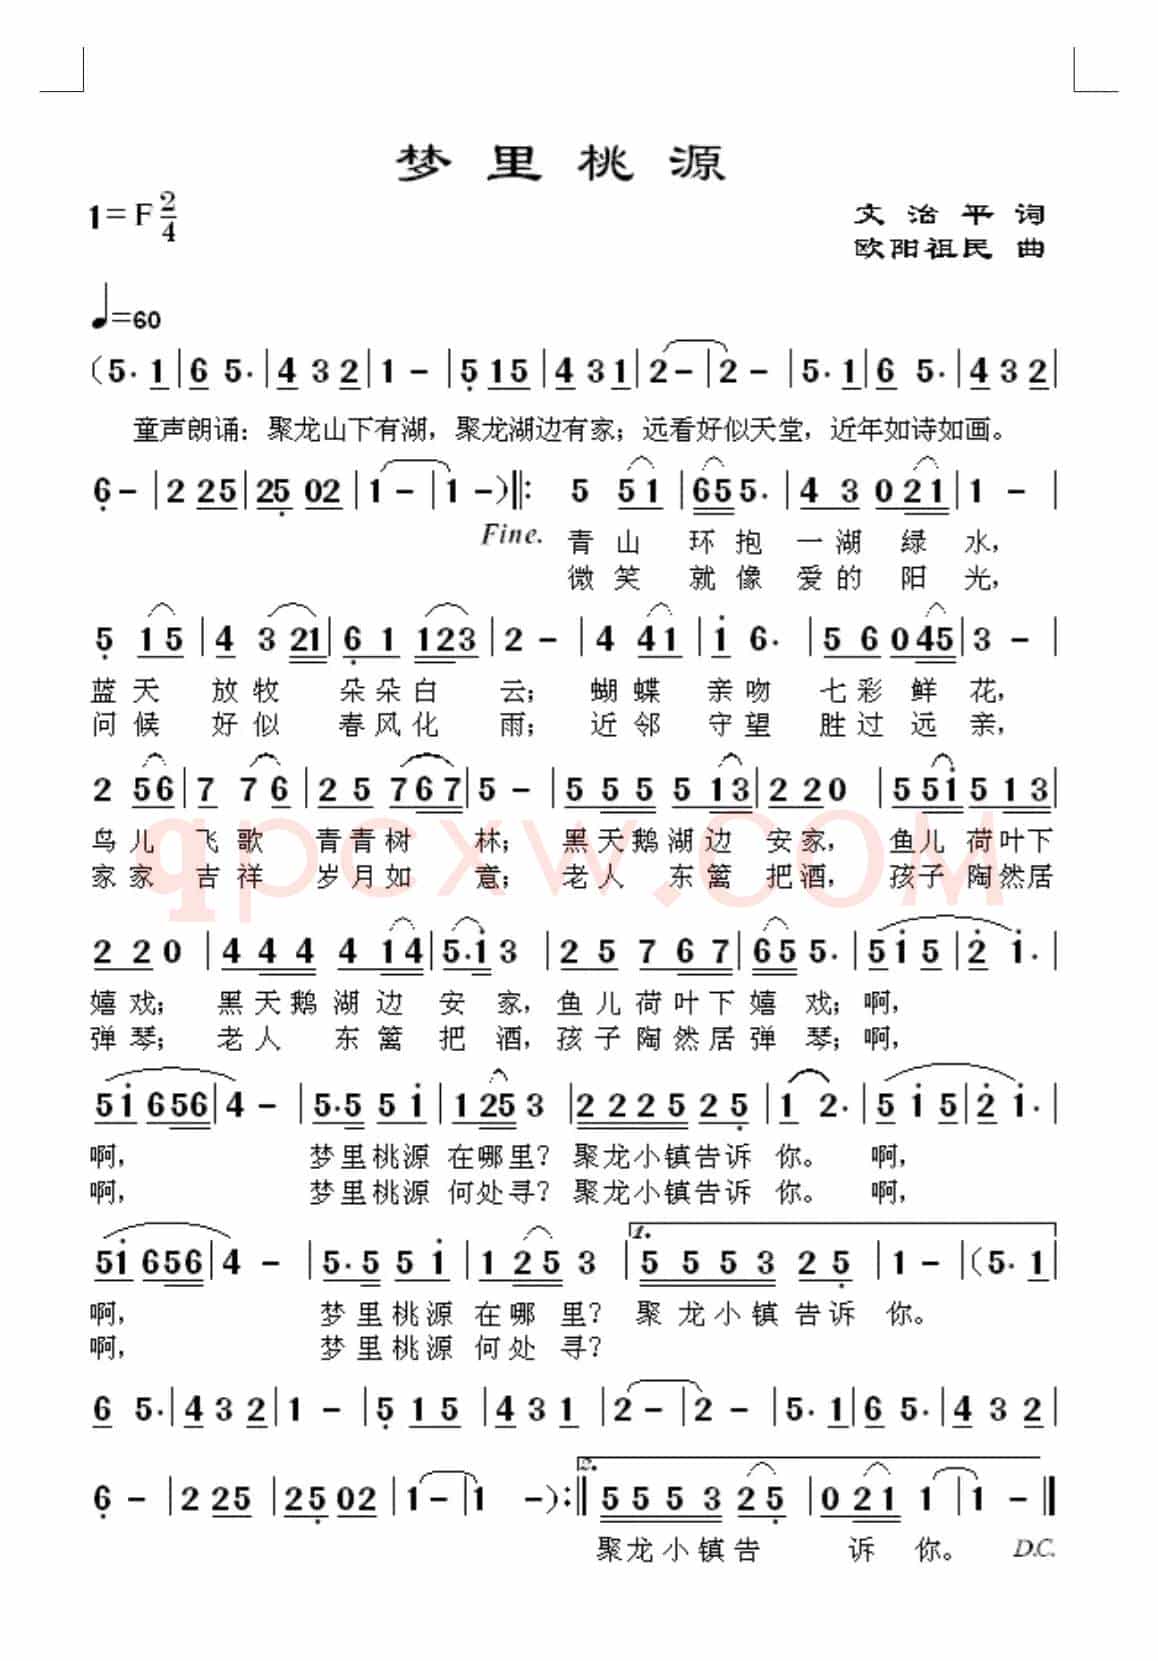 梦里桃源
1=F 2/4
文治平 词
欧阳祖民 曲
♩=60
(5. 1|6 5.|4 3 2|1 -|5 1 5|4 3 1|2 -|2 -|5. 1|6 5.|4 3 2|
童声朗诵：聚龙山下有湖，聚龙湖边有家；远看好似天堂，近年如诗如画。
6 -|2 2 5|2 5 0 2|1 -|1 -)‖: 5 5 1|6 5 5.|4 3 0 2 1|1 -|
Fine.
青山 环抱 一湖 绿 水，
微笑 就像 爱的 阳 光，
5 1 5|4 3 2 1|6 1 1 2 3|2 -|4 4 1|1 6.|5 6 0 4 5|3 -|
蓝天 放牧 朵朵白 云； 蝴蝶 亲吻 七彩 鲜 花，
问候 好似 春风化 雨； 近邻 守望 胜过 远 亲，
2 5 6|7 7 6|2 5 7 6 7|5 -|5 5 5 5 1 3|2 2 0|5 5 1 5 1 3|
鸟儿 飞歌 青青树 林； 黑天鹅湖边 安家， 鱼儿 荷叶下
家家 吉祥 岁月如 意； 老人 东篱 把酒， 孩子 陶然居
2 2 0|4 4 4 4 1 4|5. 1 3|2 5 7 6 7|6 5 5.|5 1 5|2 1.|
嬉戏； 黑天鹅湖边 安 家，鱼儿荷叶下嬉 戏；啊，
弹琴； 老人 东篱 把 酒，孩子陶然居弹 琴；啊，
5 1 6 5 6|4 -|5. 5 5 1|1 2 5 3|2 2 2 5 2 5|1 2.|5 1 5|2 1.|
啊， 梦里桃源 在哪里？聚龙小镇告诉 你。 啊，
啊， 梦里桃源 何处寻？聚龙小镇告诉 你。 啊，
5 1 6 5 6|4 -|5. 5 5 1|1 2 5 3|1. 5 5 5 3 2 5|1 -|(5. 1|
啊， 梦里桃源 在哪 里？ 聚龙小镇告诉 你。
啊， 梦里桃源 何处 寻？
6 5.|4 3 2|1 -|5 1 5|4 3 1|2 -|2 -|5. 1|6 5.|4 3 2|
6 -|2 2 5|2 5 0 2|1 -|1 -):‖2. 5 5 5 3 2 5|0 2 1 1|1 -‖
聚龙小镇告 诉 你。 D.C.
qpcxw.COM